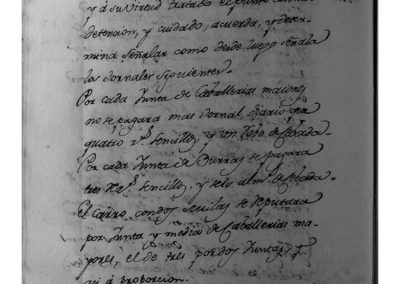 y á su Virtud tratado el punto con la
detencion, y cuidado, acuerda, y deter-
mina señalar como desde luego señala
los Jornales siguientes.
Por cada Junta de Caballerias maiores
no se pagara mas Jornal diario que
quatro r.s Sencillos, y un Zelo de Cebada.
Por cada Junta de Burras se pagara
tres R.s Sencillos, y seis alm.s de Cebada
El Carro con dos Mulas se reputara
por Junta y media de Caballerias ma-
yores, el de tres por dos Juntas, y
asi á proporcion.